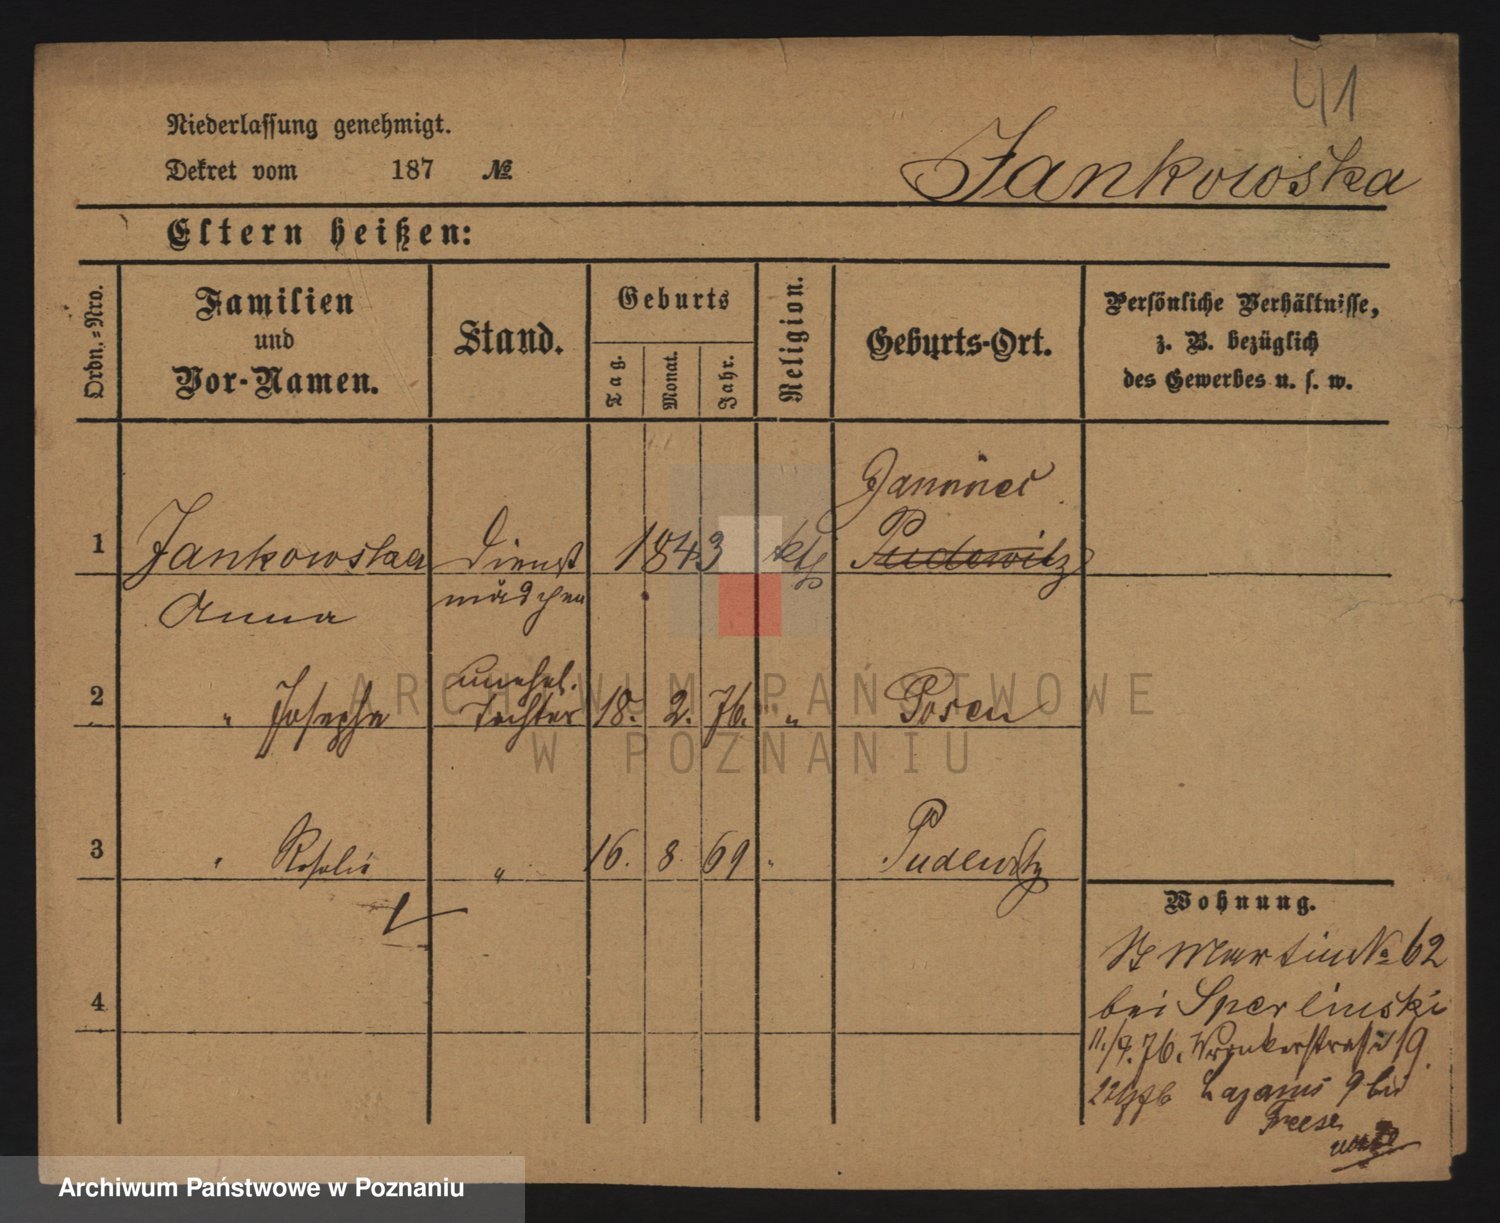 41
Niederlassung genehmigt.
Dekret vom 187 №
Jankowska
Eltern heißen:
Ordn.=Nro.
Familien und Vor-Namen.
Stand.
Geburts
Tag.
Monat.
Jahr.
Religion.
Geburts-Ort.
Persönliche Verhältnisse,
z. B. bezüglich
des Gewerbes u. s. w.
1 Jankowska Anna Dienst mädchen 1843 kth Pudewitz
2 " Josepha unehel. Tochter 18. 2. 76. " Posen
3 " Rosalie " 16. 8. 69 " Pudewitz
Wohnung.
St Martin № 62
bei Sperlinski
11./9. 76. Wronkerstraße 19.
Lazarus 9 bei
Freese
4
ARCHIWUM PAŃSTWOWE
W POZNANIU
Archiwum Państwowe w Poznaniu